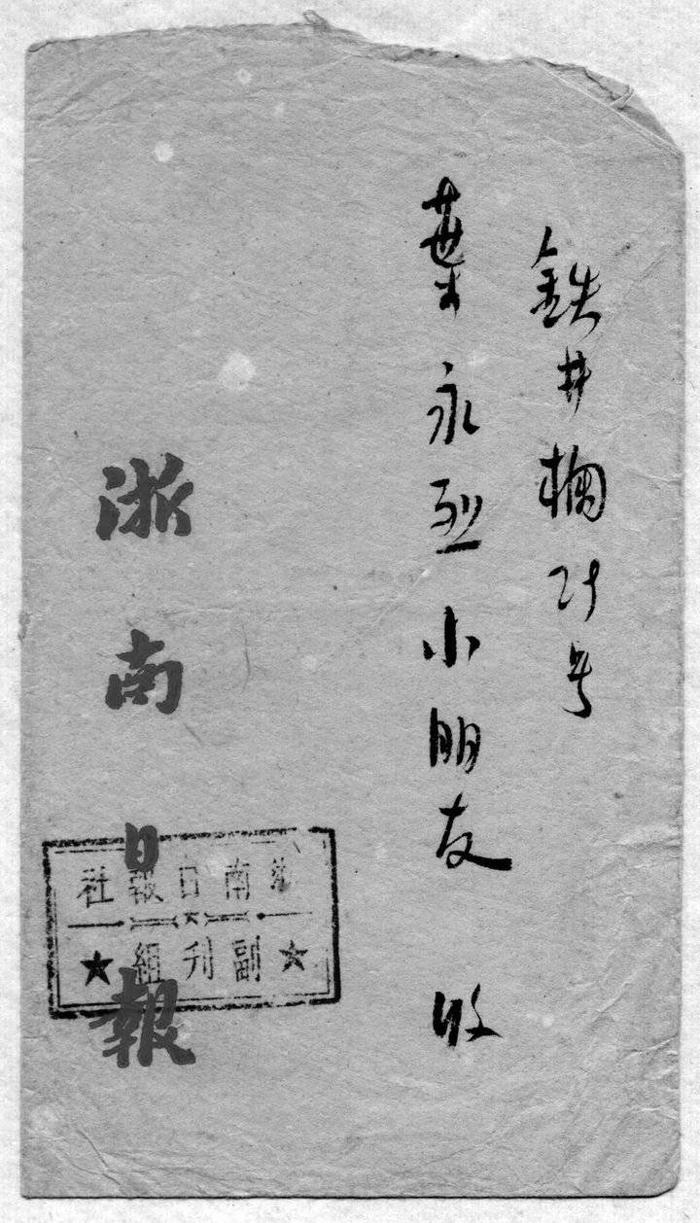 鉄井欄 号
葉永烈小朋友 收
浙南日報
浙南日報社
★副刊組★